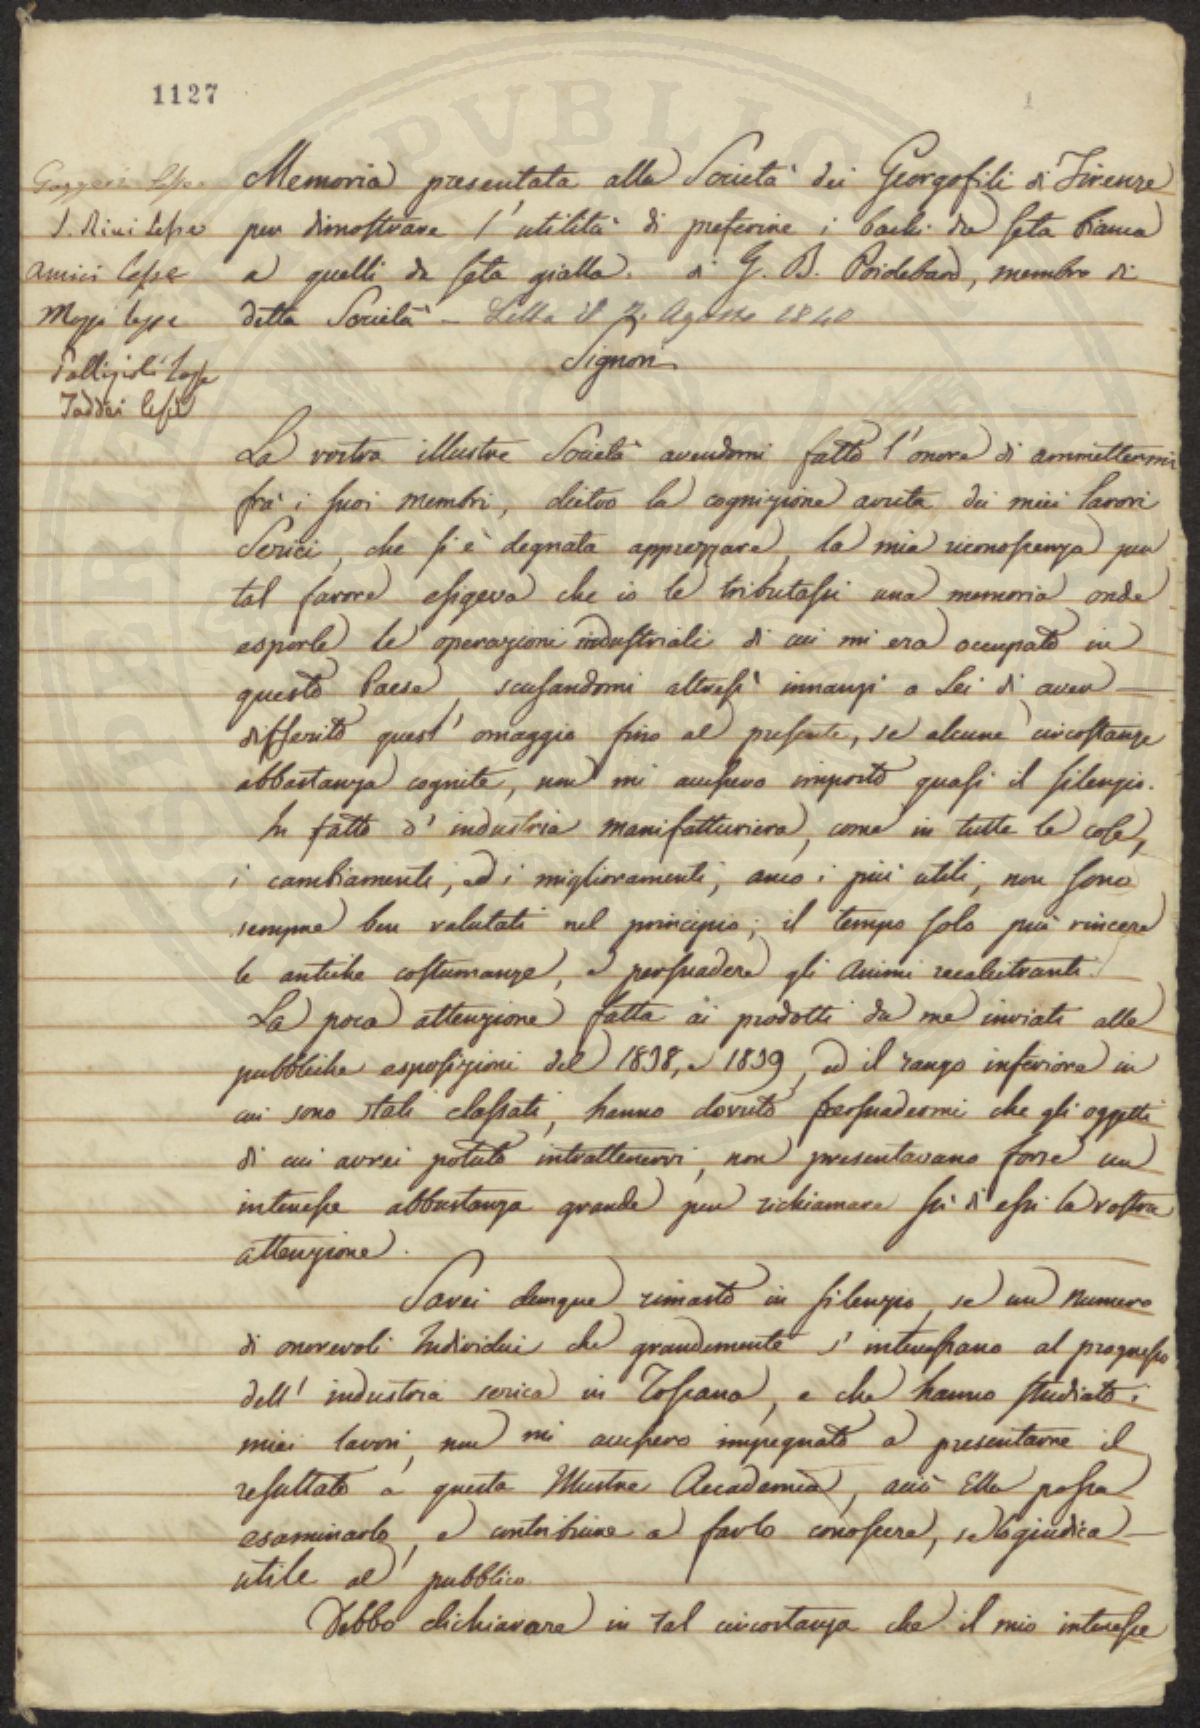 1127
1
Memoria presentata alla Società dei Georgofili di Firenze
per dimostrare l'utilità di preferire i bachi da seta bianca
a quelli da seta gialla. di G. B. Poidebard, membro di
detta Società — Letta il 2. Agosto 1840
Gazzeri lesse
S. Rivi lesse
Amici lesse
Mazzi lesse
Taddei lesse
Signori
La vostra illustre Società avendomi fatto l'onore di ammettermi
frà i suoi membri, dietro la cognizione avuta dei miei lavori
Serici, che si è degnata apprezzare, la mia riconoscenza per
tal favore esigeva che io le tributassi una memoria onde
esporle le operazioni industriali di cui mi era occupato in
questo Paese, scusandomi altresì innanzi a Lei di aver
differito quest'omaggio fino al presente, se alcune circostanze
abbastanza cognite, non mi avessero imposto quasi il silenzio.
In fatto d'industria manifatturiera, come in tutte le cose,
i cambiamenti, ed i miglioramenti, anco i più utili, non sono
sempre ben valutati nel principio; il tempo solo può vincere
le antiche costumanze, e persuadere gli animi recalcitranti.
La poca attenzione fatta ai prodotti da me inviati alle
pubbliche esposizioni del 1838, e 1839, ed il rango inferiore in
cui sono stati classati, hanno dovuto persuadermi che gli oggetti
di cui avrei potuto intrattenervi, non presentavano forse un
interesse abbastanza grande per richiamare sù di essi la vostra
attenzione.
Sarei dunque rimasto in silenzio, se un numero
di onorevoli Individui che grandemente s'interessano al progresso
dell'industria serica in Toscana, e che hanno studiato i
miei lavori, non mi avessero impegnato a presentarne il
resultato a questa Illustre Accademia, acciò Ella possa
esaminarlo, e contribuire a farlo conoscere, se lo giudica
utile al pubblico
Debbo dichiarare in tal circostanza che il mio interesse